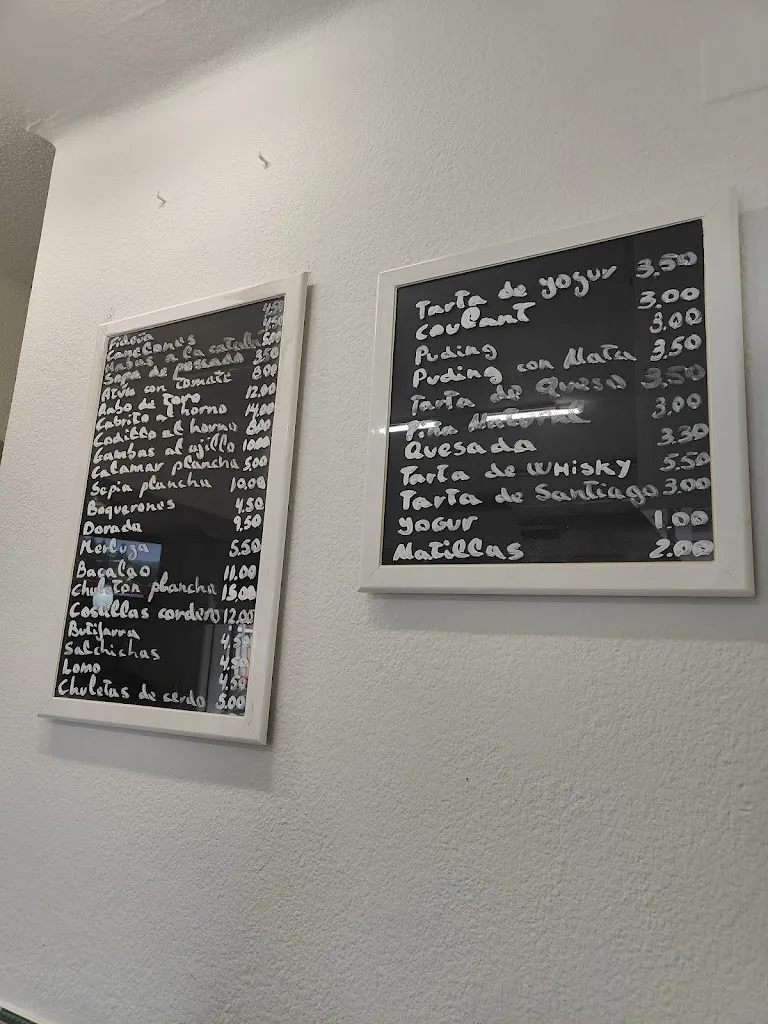 Fideua 4.50
Canelones 4.50
Habas a la catala 5.00
Sopa de pescado 3.50
Atun con tomate 8.00
Rabo de toro 12.00
Cabrito al horno 14.00
Codillo al horno 8.00
Gambas al ajillo 10.00
Calamar plancha 5.00
Sepia plancha 10.00
Boquerones 4.50
Dorada 9.50
Merluza 5.50
Bacalao 11.00
Chuleton plancha 15.00
Costillas cordero 12.00
Butifarra 4.50
Salchichas 4.50
Lomo 4.50
Chuletas de cerdo 5.00
Tarta de yogur 3.50
Coulant 3.00
Puding 3.00
Puding con Nata 3.50
Tarta de Queso 3.50
Piña Natural 3.00
Quesada 3.30
Tarta de WHisky 5.50
Tarta de Santiago 3.00
yogur 1.00
Natillas 2.00